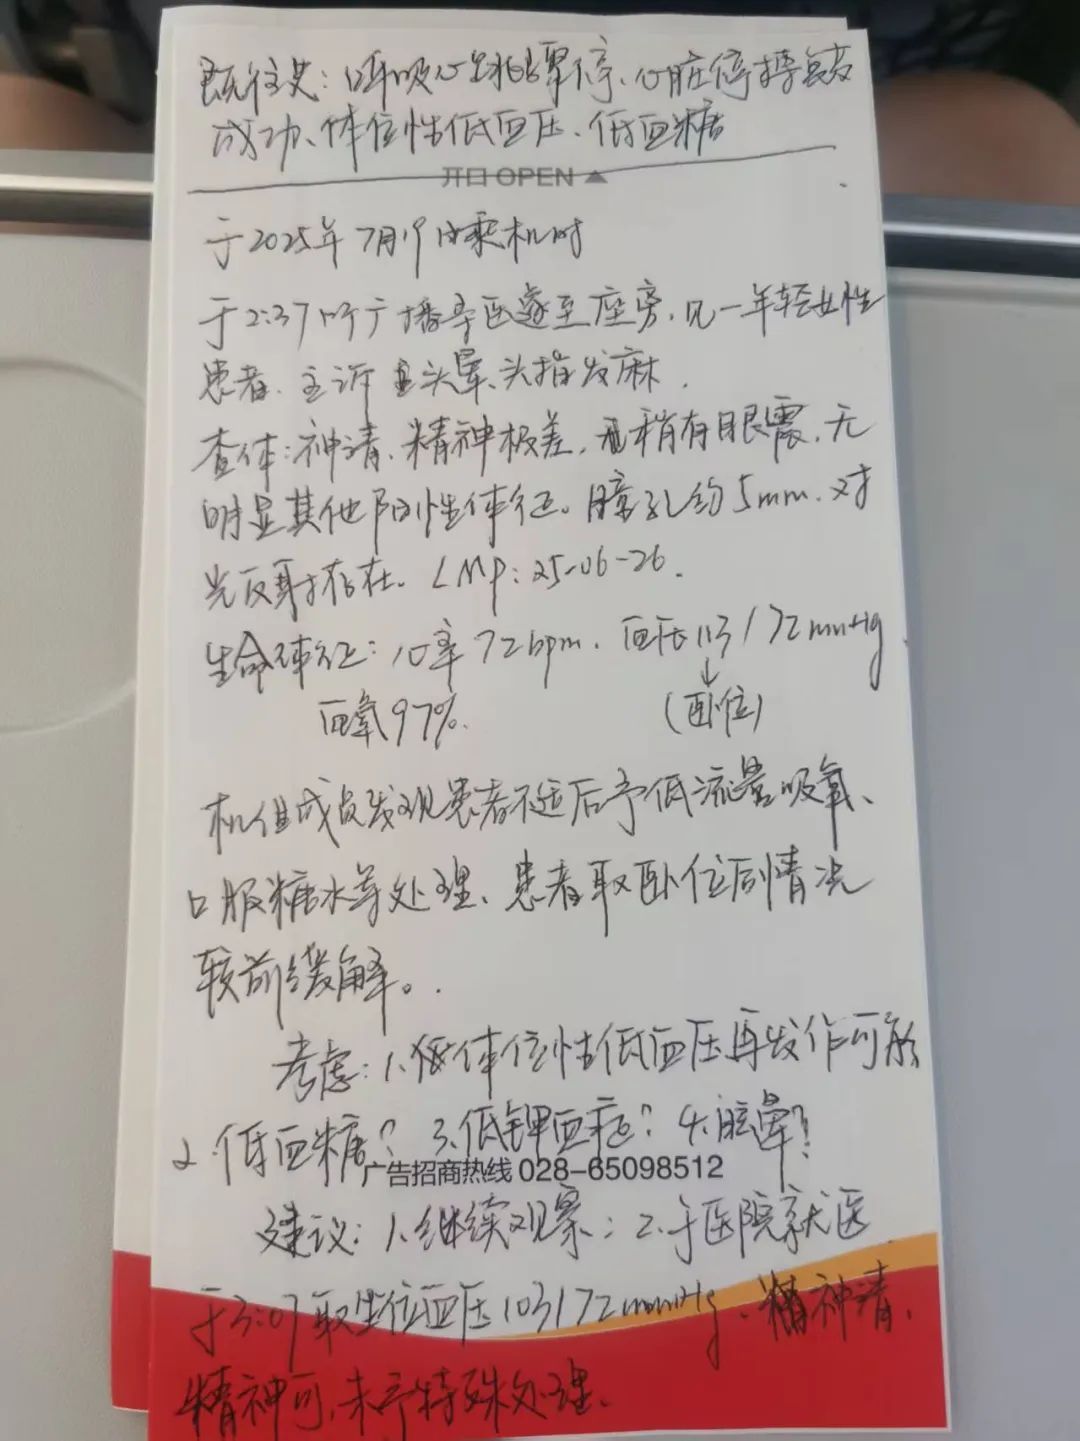 既往史：呼吸心跳骤停、心脏停搏复苏
成功、体位性低血压、低血糖
开口 OPEN
于2025年7月19日乘机时
于2:37听广播寻医遂至座旁，见一年轻女性
患者，主诉头晕、头指发麻．
查体：神清，精神极差，稍有眼震，无
明显其他阳性体征。瞳孔约5mm．对
光反射存在．LMP：25-06-26．
生命体征：心率72bpm．血压113/72mmHg．
血氧97%．（卧位）
机组成员发现患者不适后予低流量吸氧、
口服糖水等处理，患者取卧位后情况
较前缓解。
考虑：1.体位性低血压再发作可能
2.低血糖？3.低钾血症？4.眩晕？
广告招商热线 028-65098512
建议：1.继续观察；2.于医院就医
于3:07取坐位血压103/72mmHg、精神清，
精神可，未予特殊处理．